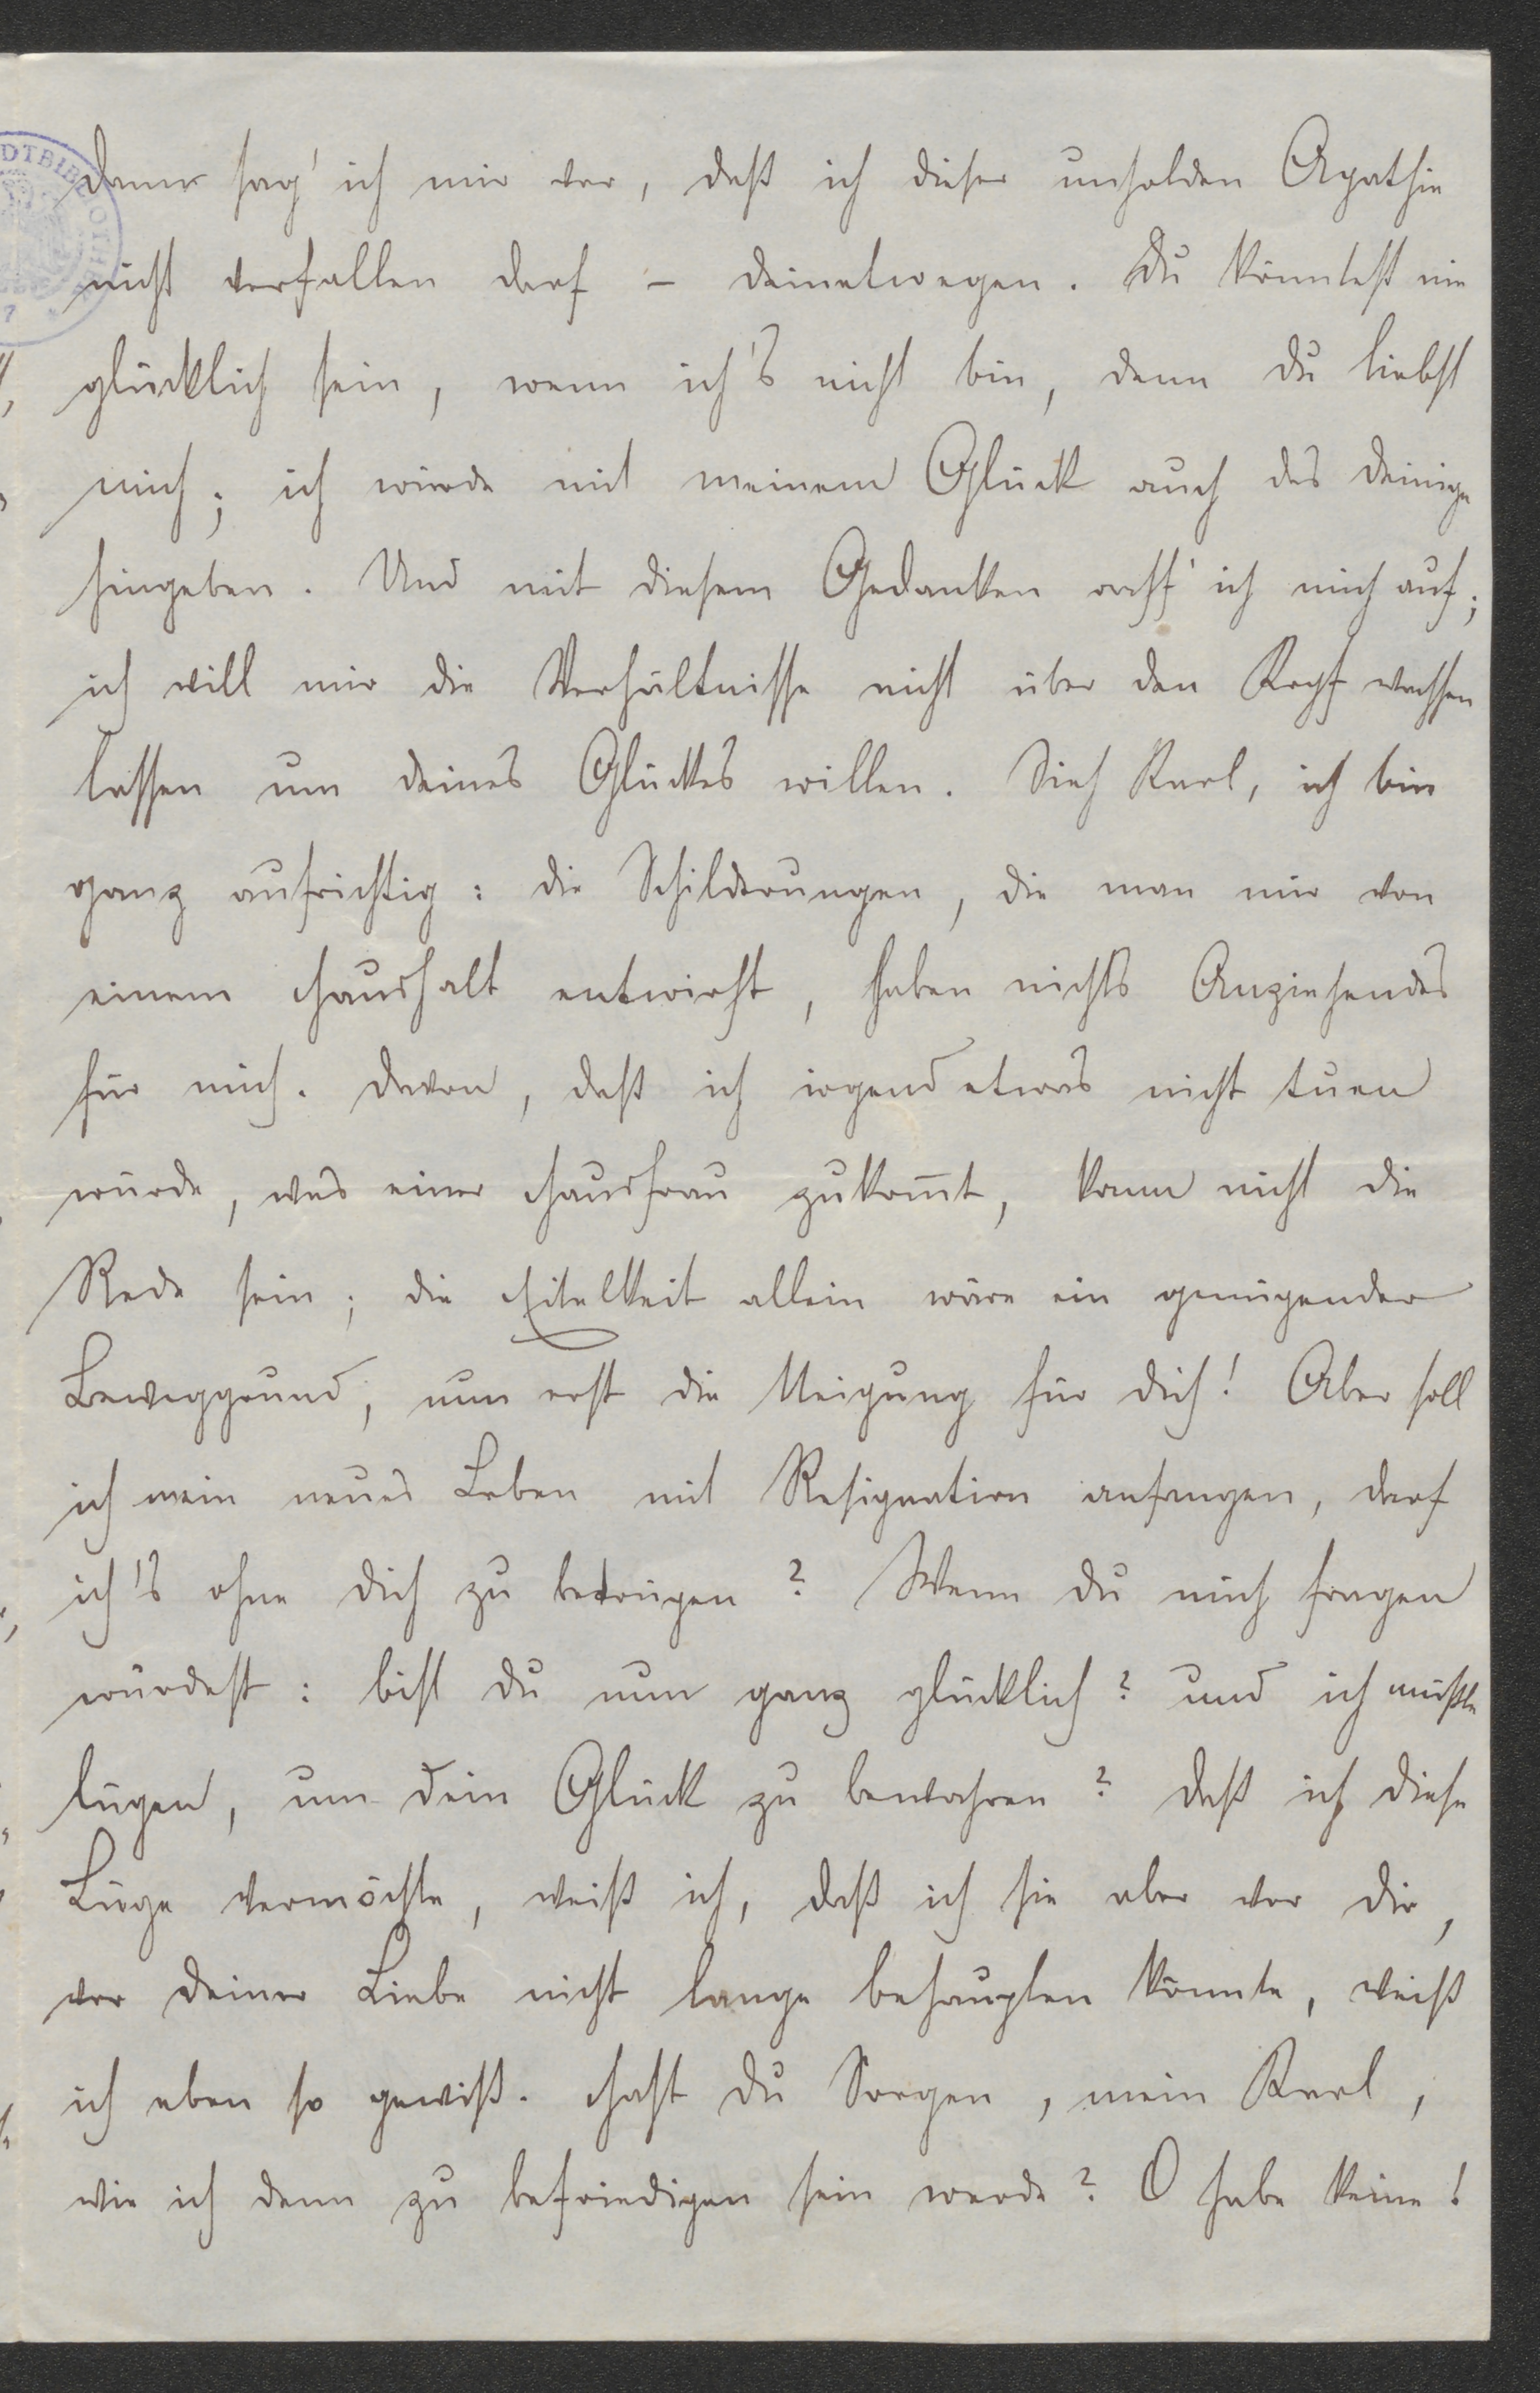 DTBIBLIOTHEK
dann sag' ich mir vor, daß ich dieser unholden Apathie
nicht verfallen darf – deinetwegen. Du könntest nie
glücklich sein, wenn ich's nicht bin, denn du liebst
mich; ich würde mit meinem Glück auch das deinige
hingeben. Und mit diesem Gedanken raff' ich mich auf;
ich will mir die Verhältnisse nicht über den Kopf wachsen
lassen um deines Glückes willen. Sieh Karl, ich bin
ganz aufrichtig: die Schilderungen, die man mir von
einem Haushalt entwirft, haben nichts Anziehendes
für mich. Davon, daß ich irgend etwas nicht tuen
würde, was einer Hausfrau zukom̅t, kann nicht die
Rede sein; die Eitelkeit allein wäre ein genügender
Beweggrund, nun erst die Neigung für dich! Aber soll
ich mein neues Leben mit Resignation anfangen, darf
ich's ohne dich zu betrügen? Wenn du mich fragen
würdest: bist du nun ganz glücklich? und ich müßte
lügen, um dein Glück zu bewahren? Daß ich diese
Lüge vermöchte, weiß ich, daß ich sie aber vor dir,
vor deiner Liebe nicht lange behaupten könnte, weiß
ich eben so gewiß. Hast du Sorgen, mein Karl,
wie ich denn zu befriedigen sein werde? O habe keine!